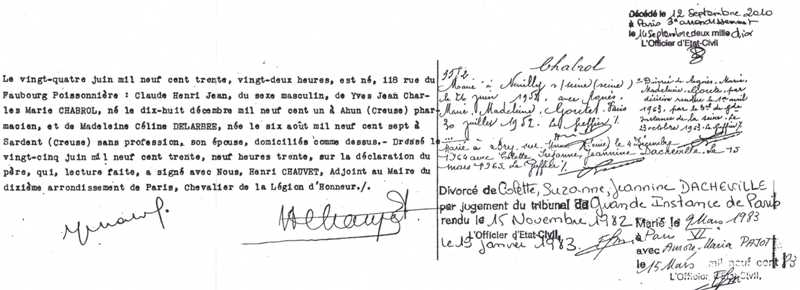 Le vingt-quatre juin mil neuf cent trente, vingt-deux heures, est né, 118 rue du
Faubourg Poissonnière : Claude Henri Jean, du sexe masculin, de Yves Jean Char-
les Marie CHABROL, né le dix-huit décembre mil neuf cent un à Ahun (Creuse) phar-
macien, et de Madeleine Céline DELARBRE, née le six août mil neuf cent sept à
Sardent (Creuse) sans profession, son épouse, domiciliés comme dessus.- Dressé le
vingt-cinq juin mil neuf cent trente, neuf heures trente, sur la déclaration du
père, qui, lecture faite, a signé avec Nous, Henri CHAUVET, Adjoint au Maire du
dixième arrondissement de Paris, Chevalier de la Légion d'Honneur./.
Décédé le 12 Septembre 2010
à Paris 3e arrondissement
le 14 Septembre deux mille dix
L'Officier d'Etat-Civil
Chabrol
Marié à Neuilly s/Seine (Seine)
le 26 juin 1952 avec Agnès
Marie, Madeleine, Goute. Paris
30 juillet 1952. Le Greffier
Divorcé de Agnès, Marie,
Madeleine, Goute, par
décision rendue le
1963. par le
Instance de la Seine. le
octobre 1963. Le Greffier
Marié à (Seine) le 4 Décembre
1964 avec Colette Suzanne, Jeannine Dacheville. le 15
mars 1965. Le Greffier
Divorcé de Colette, Suzanne, Jeannine DACHEVILLE
par jugement du tribunal de Grande Instance de Paris
rendu le 15 Novembre 1982
le 19 janvier 1983.
L'Officier d'Etat-Civil,
Marié le 9 Mars 1983
à Paris VI
avec Aurore-Maria PAJOT
le 15 Mars mil neuf cent 83
L'Officier d'Etat-Civil,